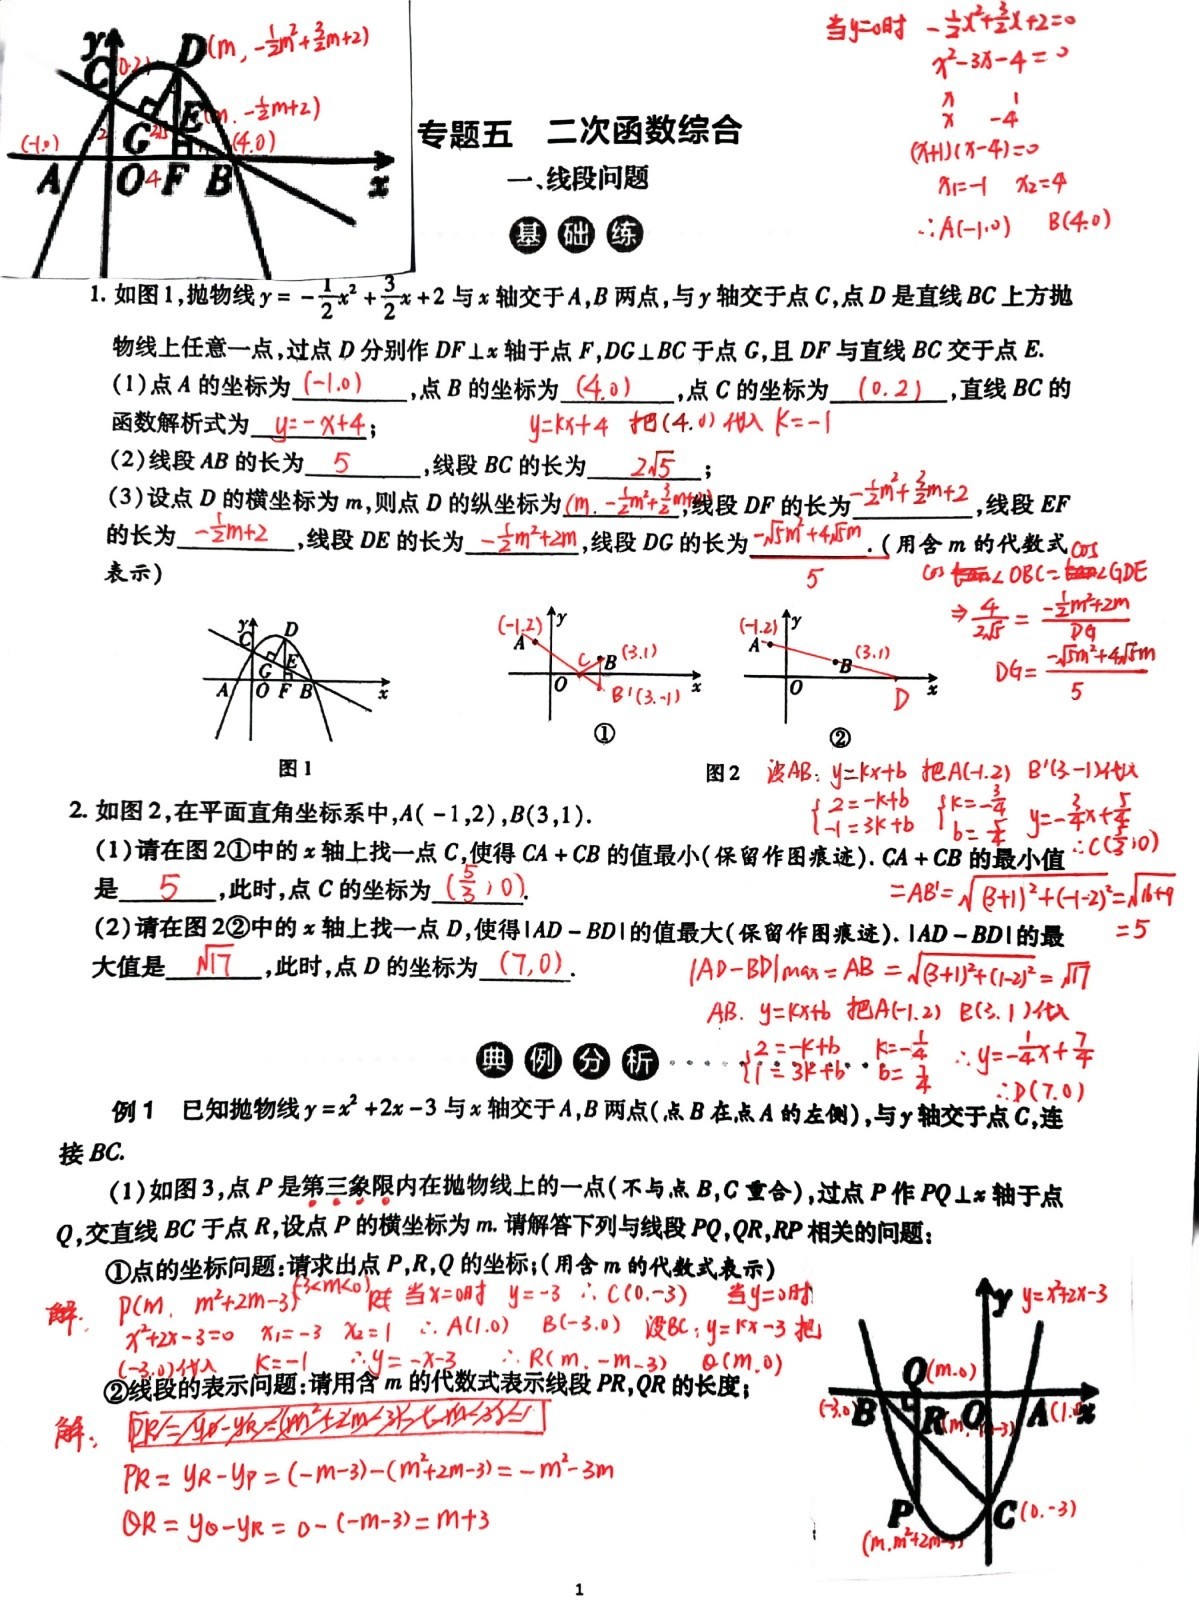 y
D(m, -1/2m²+3/2m+2)
C(0.2)
E(m, -1/2m+2)
(-1.0) 2 G 2√5 (4.0)
A O 4 F B x
当y=0时 -1/2x²+3/2x+2=0
x²-3x-4=0
x 1
x -4
(x+1)(x-4)=0
x₁=-1 x₂=4
∴A(-1.0) B(4.0)
专题五 二次函数综合
一、线段问题
基础练
1. 如图1,抛物线y = -1/2x² + 3/2x + 2 与x轴交于A,B两点,与y轴交于点C,点D是直线BC上方抛
物线上任意一点,过点D分别作DF⊥x轴于点F,DG⊥BC于点G,且DF与直线BC交于点E.
(1)点A的坐标为 (-1.0) ,点B的坐标为 (4.0) ,点C的坐标为 (0.2) ,直线BC的
函数解析式为 y=-x+4 ; y=kx+4 把(4.0)代入 k=-1
(2)线段AB的长为 5 ,线段BC的长为 2√5 ;
(3)设点D的横坐标为m,则点D的纵坐标为 (m. -1/2m²+3/2m+2) ,线段DF的长为 -1/2m²+3/2m+2 ,线段EF
的长为 -1/2m+2 ,线段DE的长为 -1/2m²+2m ,线段DG的长为 -√5m²+4√5m/5 .(用含m的代数式
表示)
cos∠OBC=cos∠GDE
⇒ 4/2√5 = -1/2m²+2m/DG
DG= -√5m²+4√5m/5
y C D G E A O F B x
图1
(-1.2) A y C B (3.1) O x B'(3.-1)
①
(-1.2) A y B (3.1) O D x
②
图2 设AB: y=kx+b 把A(-1.2) B'(3-1)代入
{2=-k+b {k=-3/4 y=-3/4x+5/4
{-1=3k+b b=5/4 ∴C(5/3,0)
2. 如图2,在平面直角坐标系中,A(-1,2),B(3,1).
(1)请在图2①中的x轴上找一点C,使得CA+CB的值最小(保留作图痕迹).CA+CB的最小值
是 5 ,此时,点C的坐标为 (5/3,0).
=AB'=√(3+1)²+(-1-2)²=√16+9
=5
(2)请在图2②中的x轴上找一点D,使得|AD-BD|的值最大(保留作图痕迹).|AD-BD|的最
大值是 √17 ,此时,点D的坐标为 (7,0) .
|AD-BD|max=AB=√(3+1)²+(1-2)²=√17
AB. y=kx+b 把A(-1.2) B(3.1)代入
{2=-k+b k=-1/4 ∴y=-1/4x+7/4
{1=3k+b b=7/4 ∴D(7.0)
典例分析
例1 已知抛物线y=x²+2x-3与x轴交于A,B两点(点B在点A的左侧),与y轴交于点C,连
接BC.
(1)如图3,点P是第三象限内在抛物线上的一点(不与点B,C重合),过点P作PQ⊥x轴于点
Q,交直线BC于点R,设点P的横坐标为m.请解答下列与线段PQ,QR,RP相关的问题:
①点的坐标问题:请求出点P,R,Q的坐标;(用含m的代数式表示)
解: P(m. m²+2m-3)(-3<m<0) 当x=0时 y=-3 ∴C(0.-3) 当y=0时
x²+2x-3=0 x₁=-3 x₂=1 ∴A(1.0) B(-3.0) 设BC:y=kx-3 把
(-3.0)代入 k=-1 ∴y=-x-3 ∴R(m.-m-3) Q(m.0)
②线段的表示问题:请用含m的代数式表示线段PR,QR的长度;
解:
PR=yR-yP=(-m-3)-(m²+2m-3)=-m²-3m
QR=yQ-yR=0-(-m-3)=m+3
y y=x²+2x-3
Q(m.0)
(-3.0) B R(m.-m-3) O A(1.0) x
P C(0.-3)
(m.m²+2m-3)
1